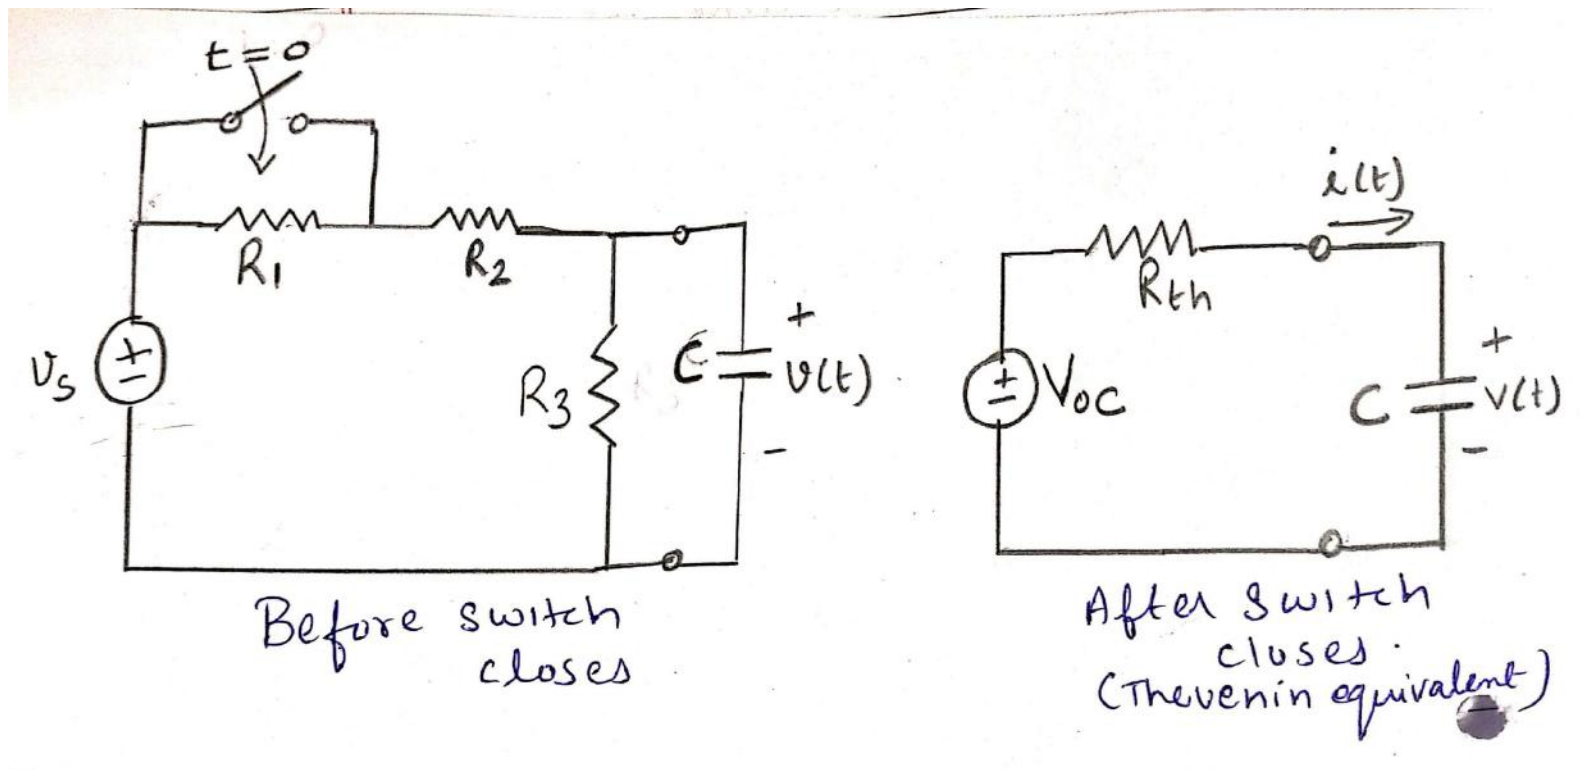 t=0
R1
R2
vs
+
-
R3
C
+
v(t)
-
Before switch
closes
i(t)
Rth
+
-
Voc
C
+
v(t)
-
After switch
closes.
(Thevenin equivalent)